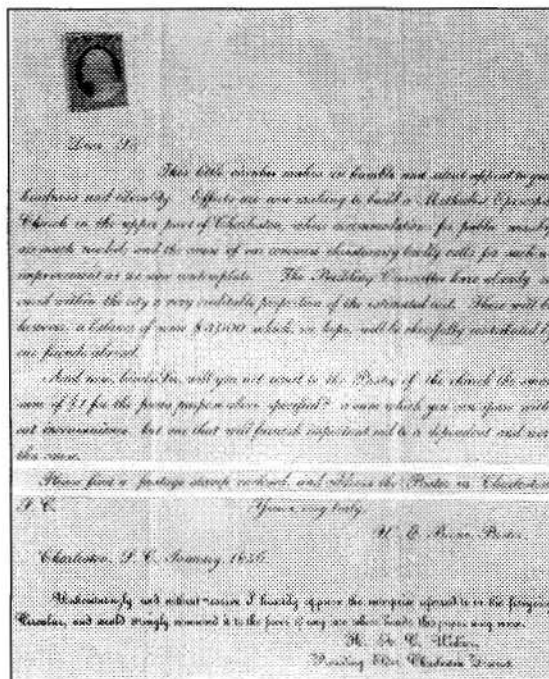 Dear Sir
This little circular makes an humble and silent appeal to your
kindness and liberality. Efforts are now making to build a Methodist Episcopal
Church in the upper part of Charleston, where accommodations for public worship
are much needed, and the cause of our common christianity loudly calls for such an
improvement as we now contemplate. The Building Committee have already
within the city a very creditable proportion of the estimated cost. There will be
however, a balance of some which, we hope, will be cheerfully contributed by
our friends abroad.
And now, kind Sir, will you not remit to the Pastor of the church the small
sum of $1 for the pious purpose above specified? a sum which you can spare with
out inconvenience, but one that will furnish important aid to a dependent and
cause.
Please find a postage stamp enclosed, and address the Pastor in Charleston
S. C. Yours, very truly,
Pastor.
Charleston, S. C. January, 1856
and without reserve I heartily approve the enterprise referred to in the foregoing
Circular, and would strongly commend it to the favor of any into whose hands this paper may come.
H. A. C. Walker,
Presiding Elder, Charleston District